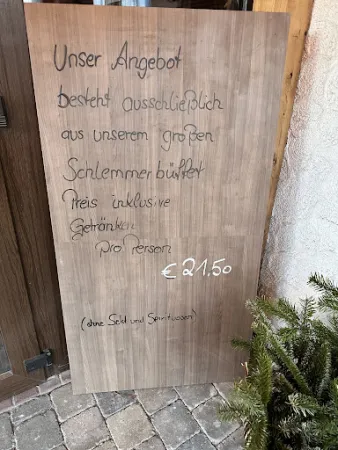 Unser Angebot
besteht ausschließlich
aus unserem großen
Schlemmerbüffet
Preis inklusive
Getränken
pro Person
€ 21.50
(ohne Sekt und Spirituosen)